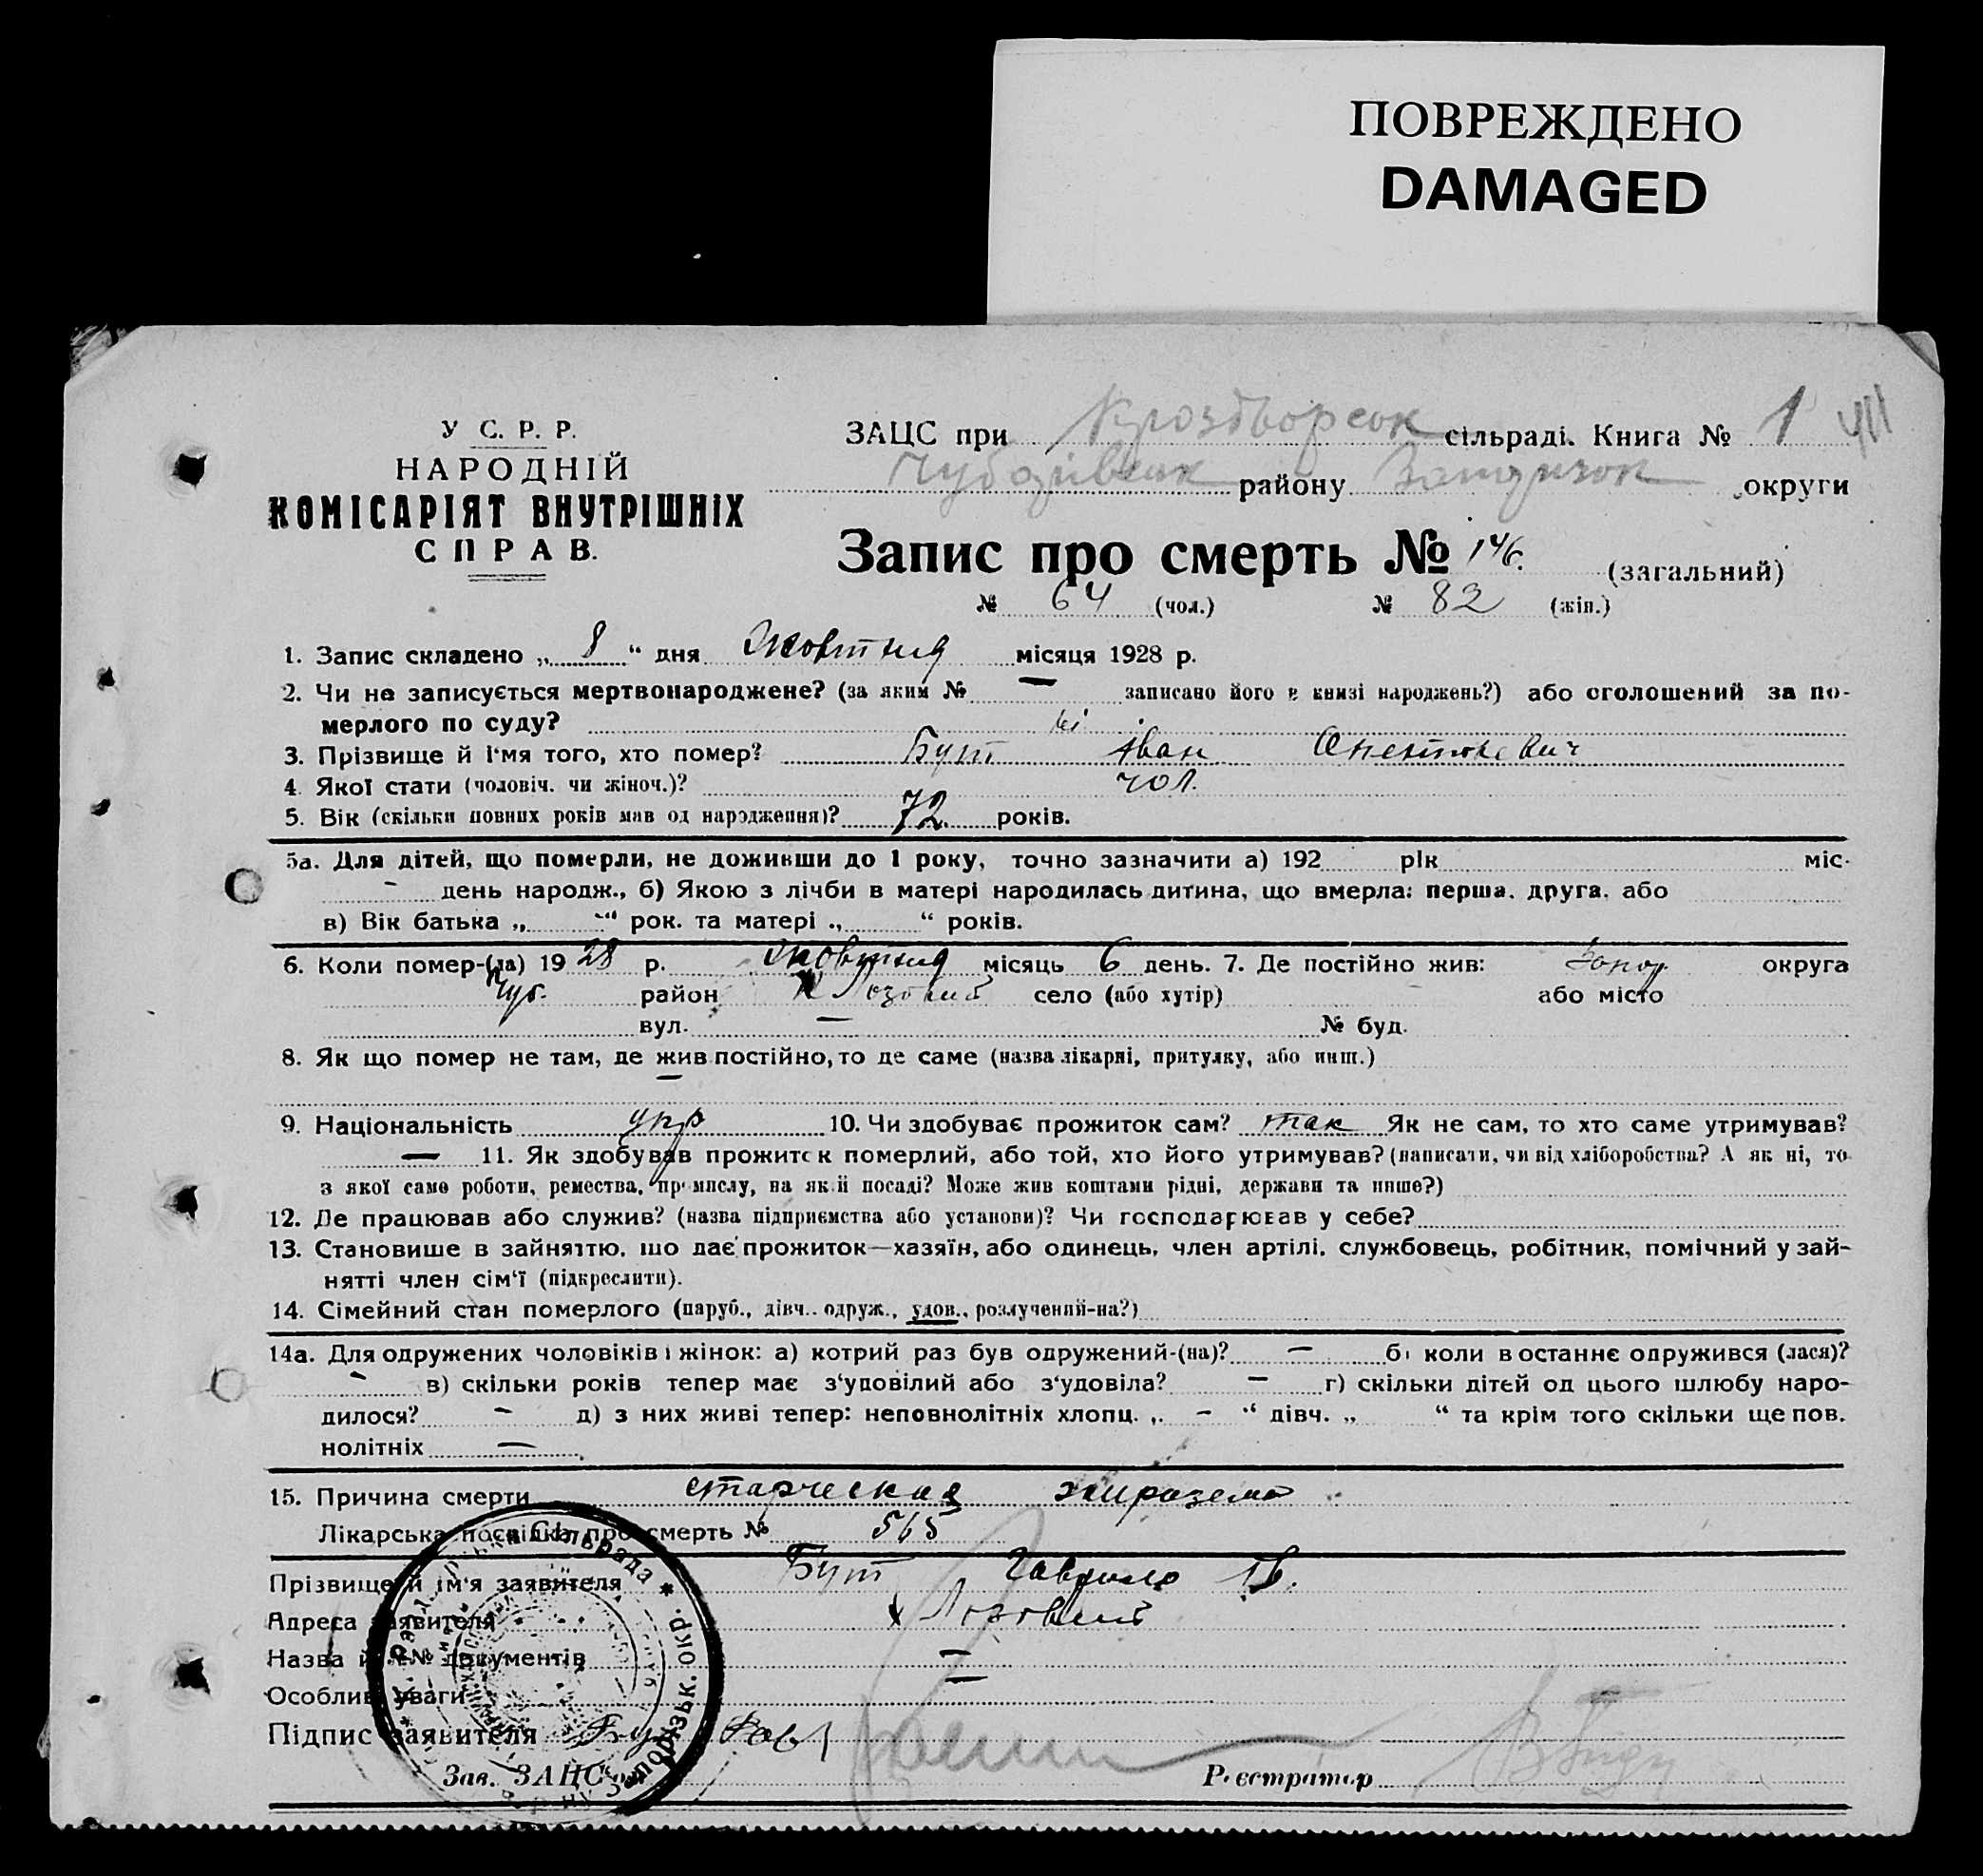 ПОВРЕЖДЕНО
DAMAGED
У С. Р. Р.
НАРОДНІЙ
КОМІСАРІЯТ ВНУТРІШНІХ
СПРАВ.
ЗАЦС при сільраді. Книга № 1
району округи
Запис про смерть № 146. (загальний)
№ 64 (чол.) № 82 (жін.)
1. Запис складено „ 8 “ дня Жовтня місяця 1928 р.
2. Чи не записується мертвонароджене? (за яким № — записано його в книзі народжень?) або оголошений за по-
мерлого по суду? ні
3. Прізвище й і'мя того, хто помер? Бут Іван
4. Якої стати (чоловіч. чи жіноч.)? чол.
5. Вік (скільки повних років мав од народження)? 72 років.
5а. Для дітей, що померли, не доживши до 1 року, точно зазначити а) 192 рік міс.
- день народж., б) Якою з лічби в матері народилась дитина, що вмерла: перша, друга, або
в) Вік батька „ -“ рок. та матері „ “ років.
6. Коли помер-(ла) 1928 р. Жовтня місяць 6 день. 7. Де постійно жив: Запор. округа
Чуб. район х Лозовий село (або хутір) або місто
вул. — № буд.
8. Як що помер не там, де жив постійно, то де саме (назва лікарні, притулку, або инш.)
—
9. Національність укр 10. Чи здобуває прожиток сам? так Як не сам, то хто саме утримував?
— 11. Як здобував прожиток померлий, або той, хто його утримував? (написати, чи від хліборобства? А як ні, то
з якої саме роботи, ремества, промислу, на якій посаді? Може жив коштами рідні, держави та инше?)
12. Де працював або служив? (назва підприємства або установи)? Чи господарював у себе?
13. Становище в зайняттю, що дає прожиток—хазяїн, або одинець, член артілі, службовець, робітник, помічний у зай-
нятті член сім'ї (підкреслити).
14. Сімейний стан померлого (паруб., дівч., одруж., удов., розлучений-на?)
14а. Для одружених чоловіків і жінок: а) котрий раз був одружений-(на)? — б) коли в останнє одружився (лася)?
- в) скільки років тепер має з'удовілий або з'удовіла? — г) скільки дітей од цього шлюбу наро-
дилося? - д) з них живі тепер: неповнолітніх хлопц. „ - “ дівч. „ “ та крім того скільки ще пов.
нолітніх —
15. Причина смерти старческая
Лікарська посвідка про смерть № 565
Прізвище й ім'я заявителя Бут Гаврило Ів.
Адреса заявителя х Лозовий
Назва й № документів —
Особливі уваги —
Підпис заявителя Бут Гавр
Зав. ЗАЦС'ом Реєстратор
Сільрада * Запорізьк. окр.